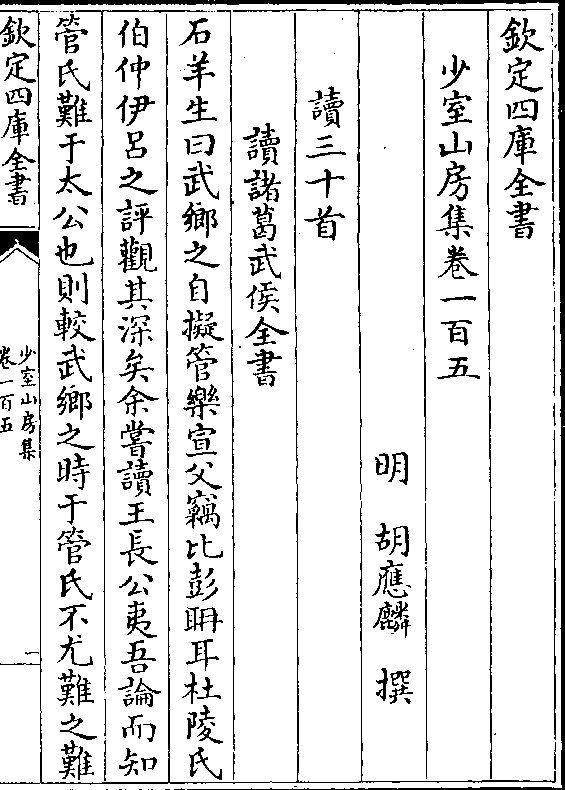 欽定四庫全書
少室山房集卷一百五
明　胡應麟　撰
讀三十首
讀諸葛武侯全書
石羊生曰武鄉之自擬管樂宣父竊比彭聃耳杜陵氏
伯仲伊呂之評觀其深矣余嘗讀王長公夷吾論而知
管氏難于太公也則較武鄉之時于管氏不尤難之難
欽定四庫全書
少室山房集
卷一百五
一